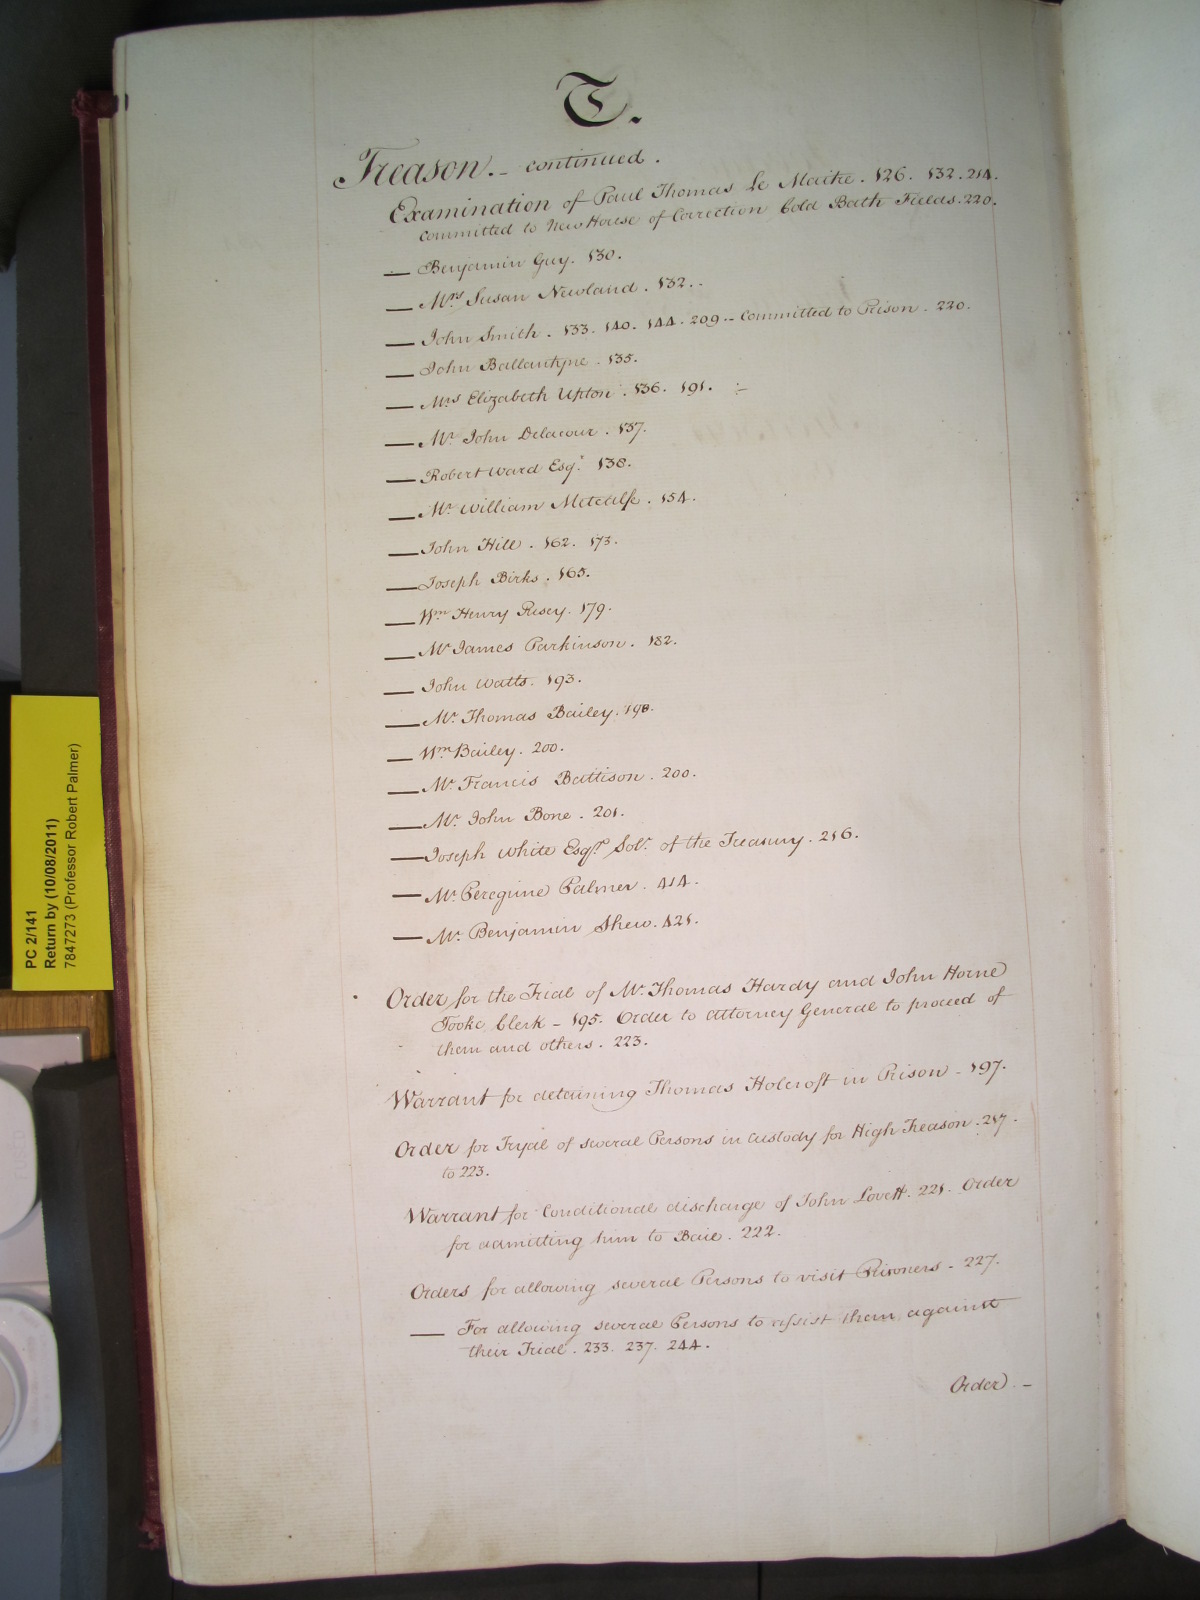 T.
Treason. - continued.
Examination of Paul Thomas Le Maitre. 126. 132. 214.
committed to New House of Correction Cold Bath Fields. 220.
— Benjamin Guy. 130.
— Mrs Susan Newland. 132..
— John Smith. 133. 140. 144. 209 - Committed to Prison. 220.
— John Ballantyne. 135.
— Mrs Elizabeth Upton. 136. 191. :-
— Mr. John Delacour. 137.
— Robert Ward Esqr. 138.
— Mr. William Metcalfe. 154.
— John Hill. 162. 173.
— Joseph Birks. 165.
— Wm Henry Pusey. 179.
— Mr James Parkinson. 182.
— John Watts. 193.
— Mr. Thomas Bailey. 198.
— Wm Bailey. 200.
— Mr. Francis Battison. 200.
— Mr. John Bone. 201.
— Joseph White Esqr. Solr. of the Treasury. 216.
— Mr. Peregrine Palmer. 414.
— Mr. Benjamin Shew. 421.
Order for the Trial of Mr. Thomas Hardy and John Horne
Tooke Clerk - 195. Order to Attorney General to proceed of
them and others. 223.
Warrant for detaining Thomas Holcroft in Prison - 197.
Order for Tryal of several Persons in custody for High Treason. 217.
to 223.
Warrant for Conditional discharge of John Lovett. 221. Order
for admitting him to Bail. 222.
Orders for allowing several Persons to visit Prisoners - 227.
— For allowing several Persons to assist them against
their Trial. 233. 237. 244.
Order -
PC 2/141
Return by (10/08/2011)
7847273 (Professor Robert Palmer)